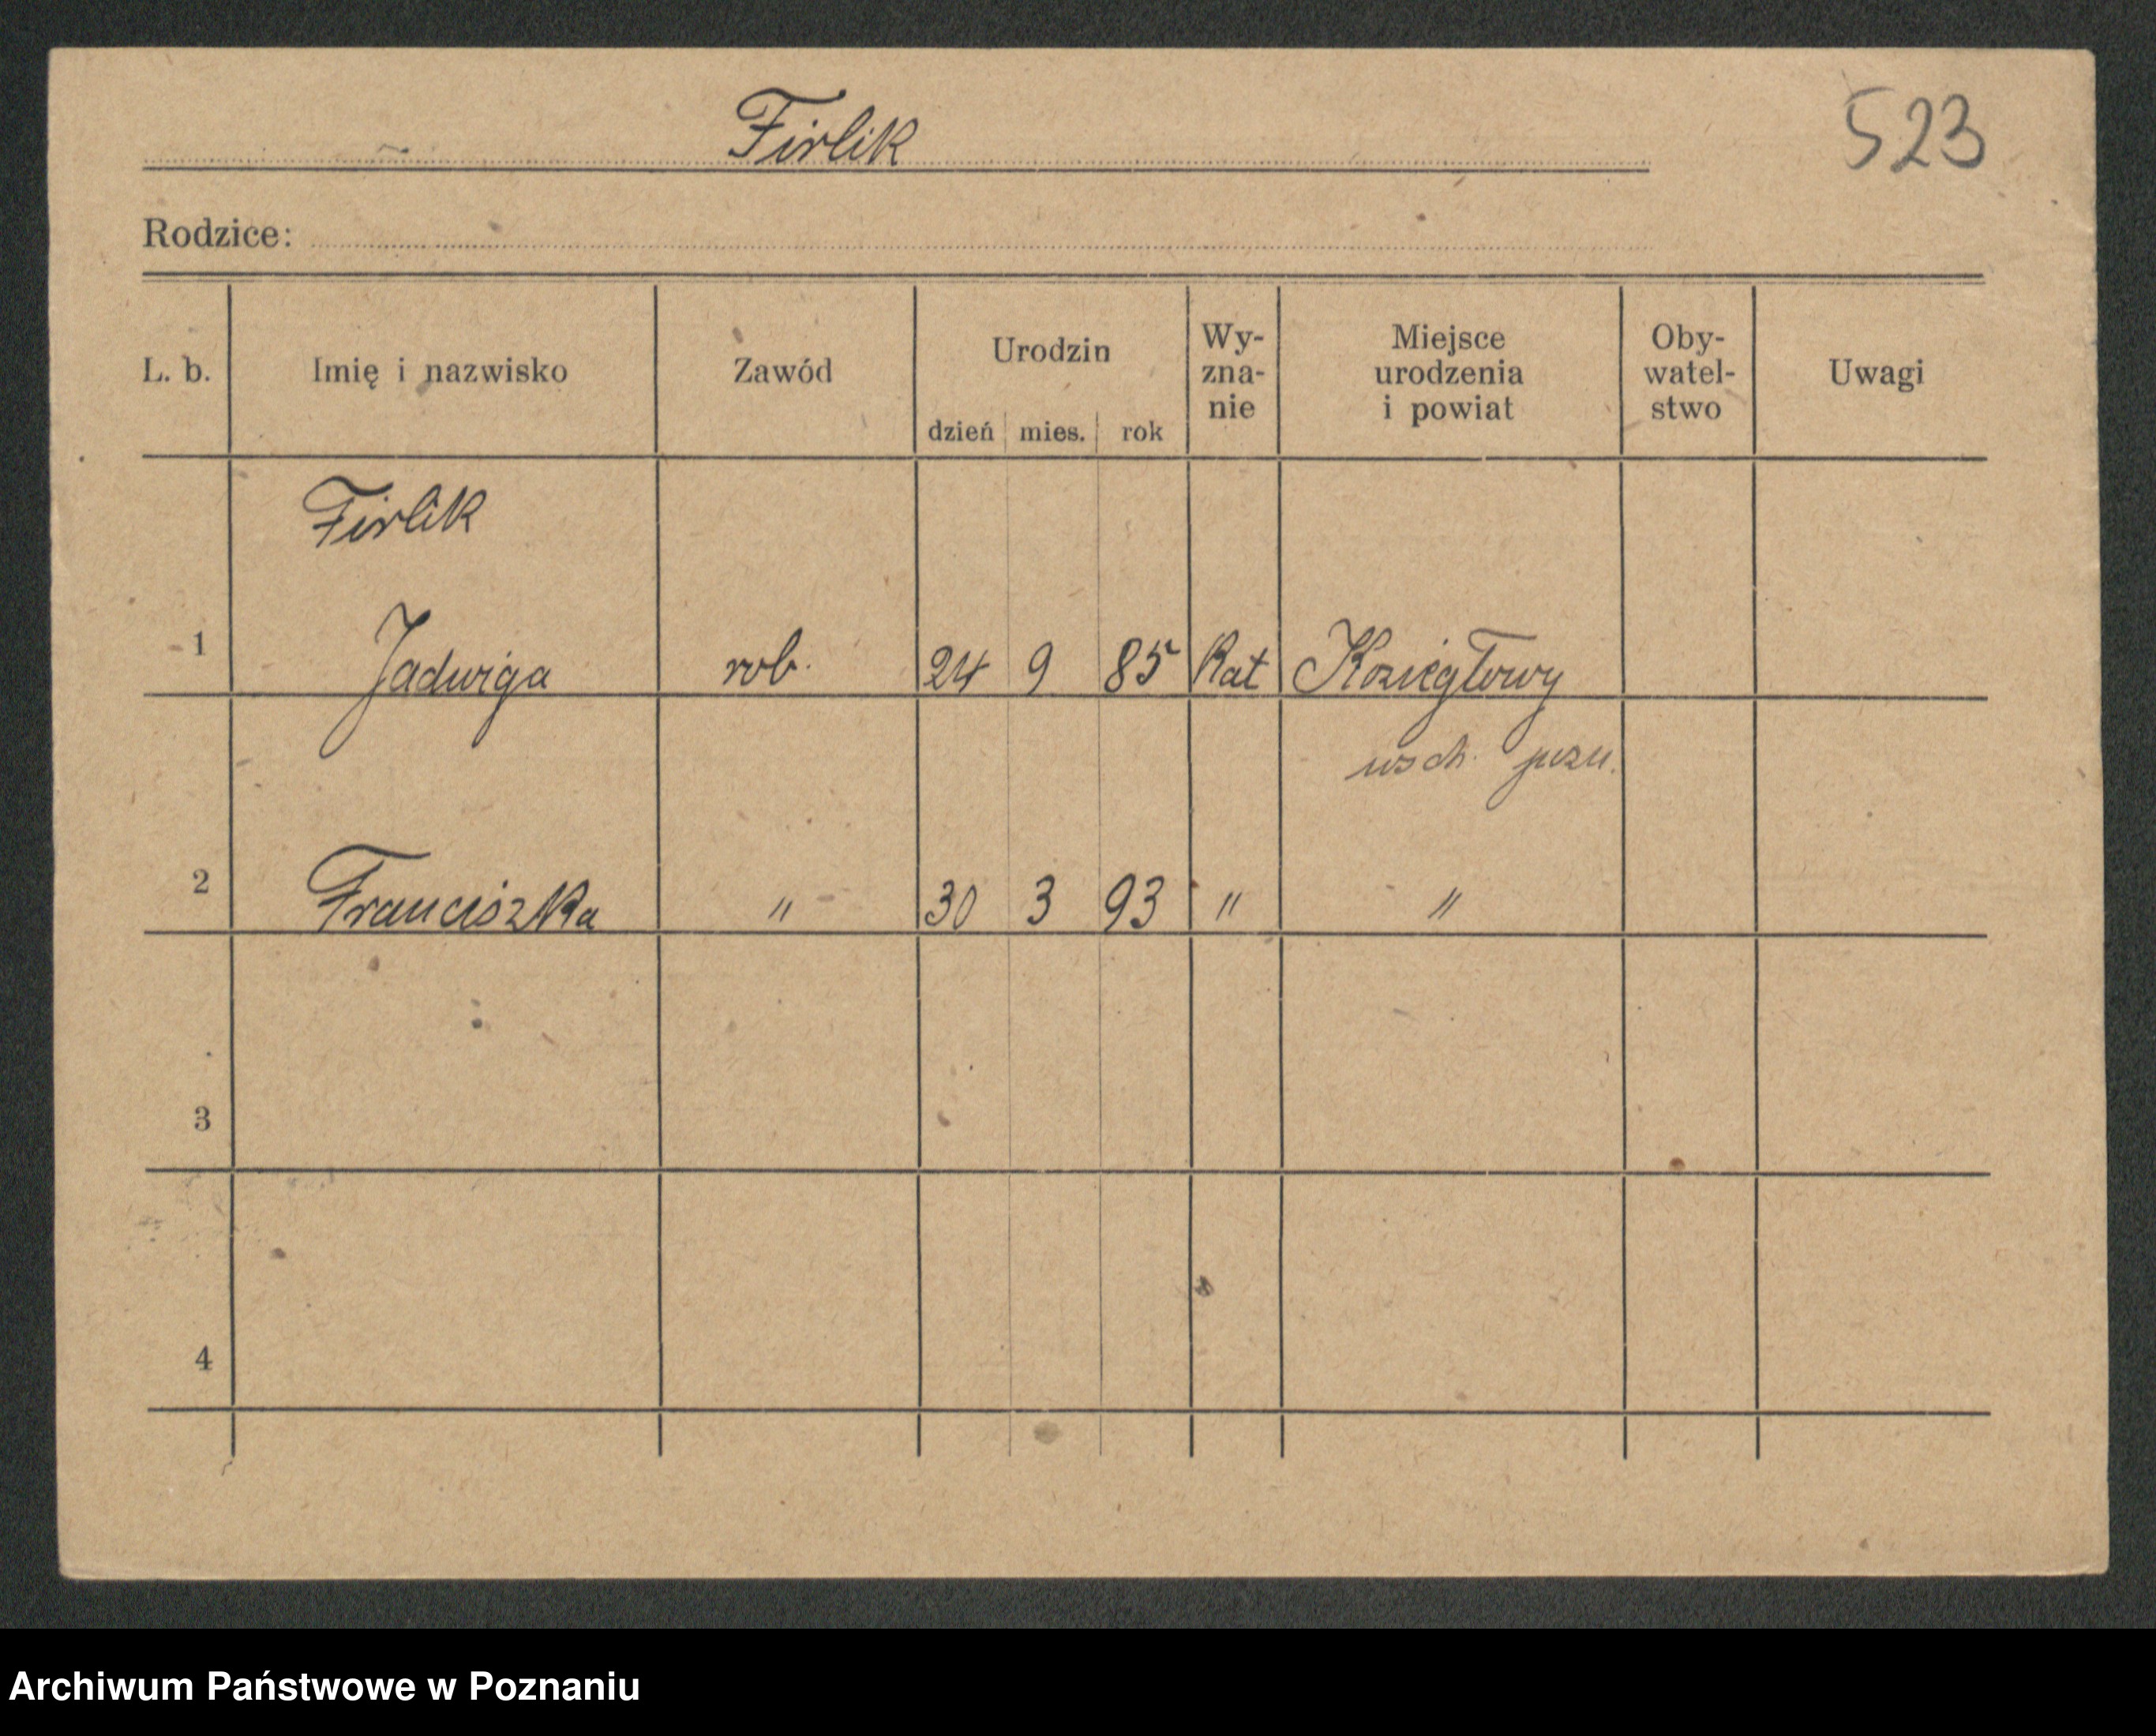 Firlik
523
Rodzice:
L. b. Imię i nazwisko Zawód Urodzin dzień mies. rok Wy- zna- nie Miejsce urodzenia i powiat Oby- watel- stwo Uwagi
Firlik
1 Jadwiga rob. 24 9 85 Kat Koziegłowy
wsch. pozn.
2 Franciszka " 30 3 93 " "
3
4
Archiwum Państwowe w Poznaniu